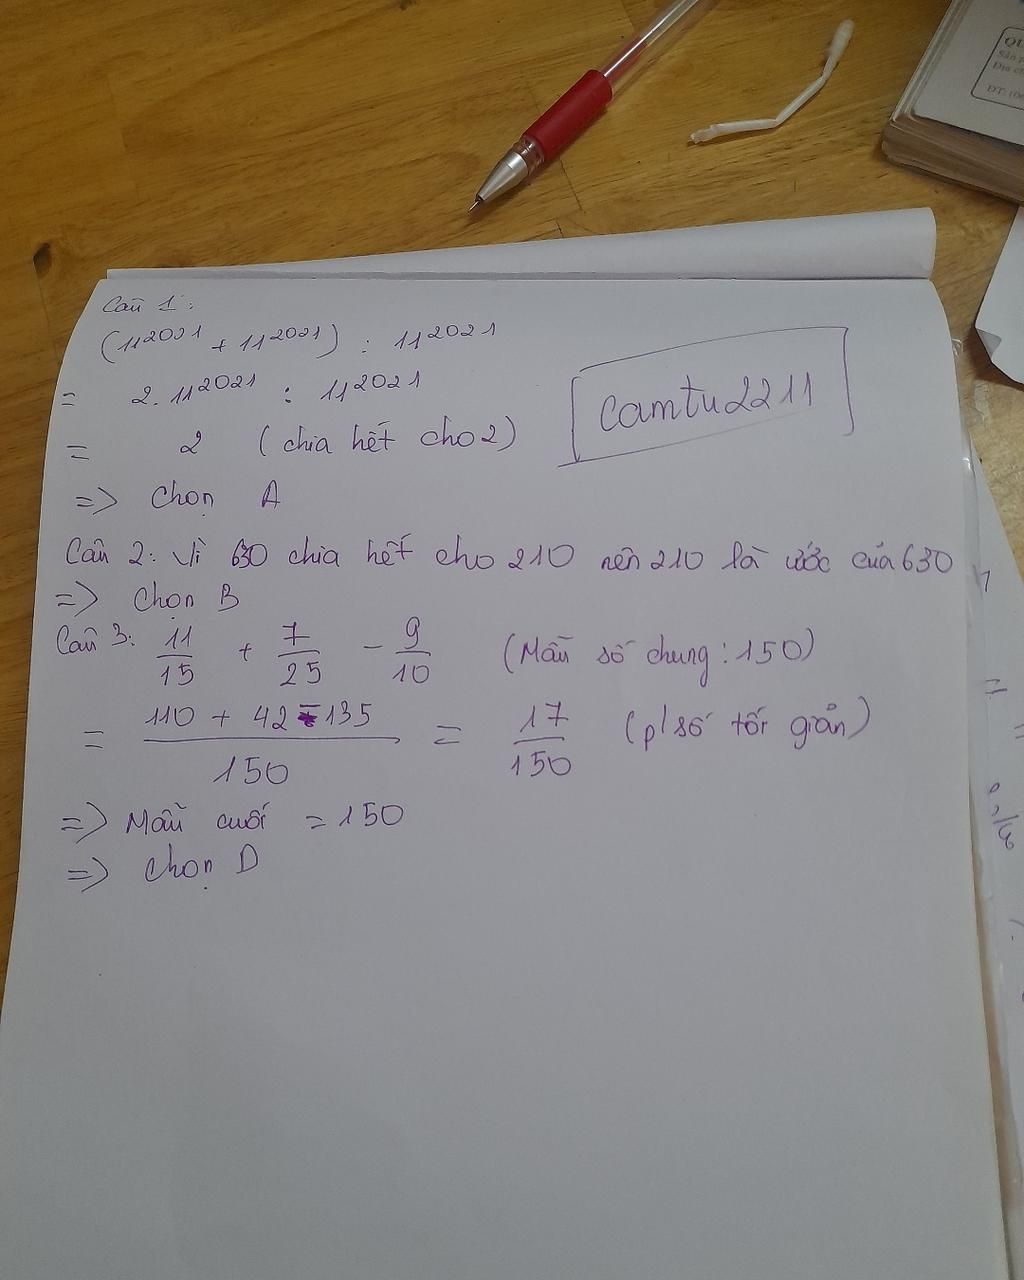 Câu 1:
(11^2021 + 11^2021) : 11^2021
= 2. 11^2021 : 11^2021
= 2 (chia hết cho 2)
=> Chọn A
Camtu2211
Câu 2: Vì 630 chia hết cho 210 nên 210 là ước của 630
=> Chọn B
Câu 3: 11/15 + 7/25 - 9/10 (Mẫu số chung: 150)
= (110 + 42 - 135)/150 = 17/150 (p/số tối giản)
=> Mẫu cuối = 150
=> Chọn D
QU
Sản p
Địa ch
ĐT: (0